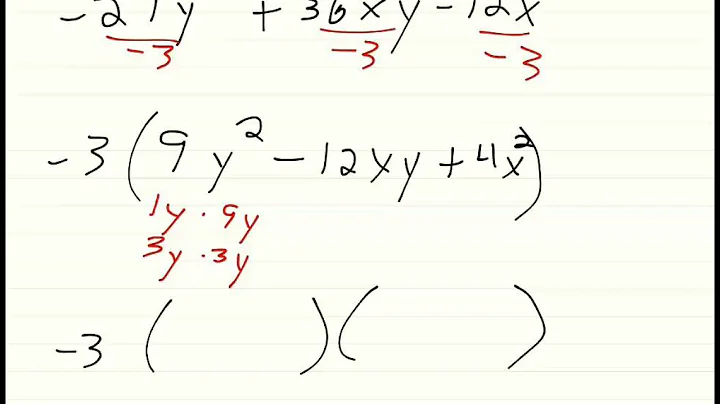 -27y + 36xy - 12x
-3 -3 -3
-3 (9y² - 12xy + 4x²)
1y · 9y
3y · 3y
-3 ( )( )